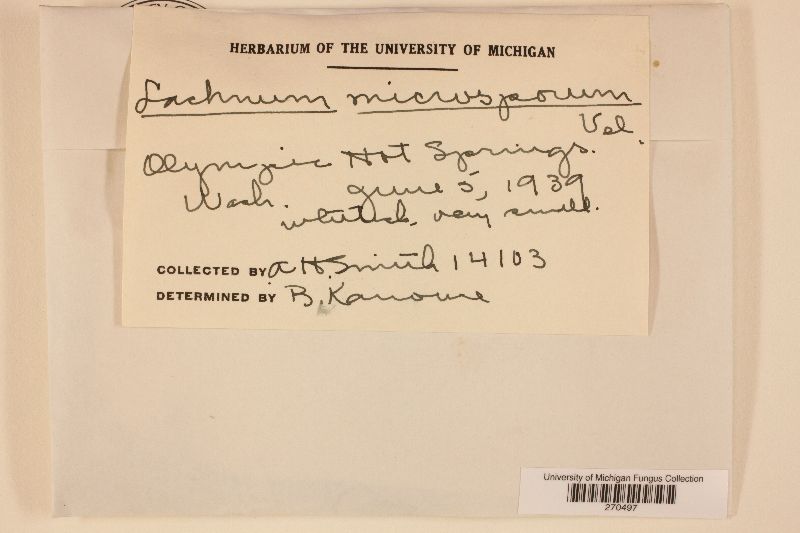 HERBARIUM OF THE UNIVERSITY OF MICHIGAN
Lachnum microsporum
Vel.
Olympic Hot Springs.
Wash. June 5, 1939
whitish, very small.
COLLECTED BY A H. Smith 14103
DETERMINED BY B. Kanouse
University of Michigan Fungus Collection
270497